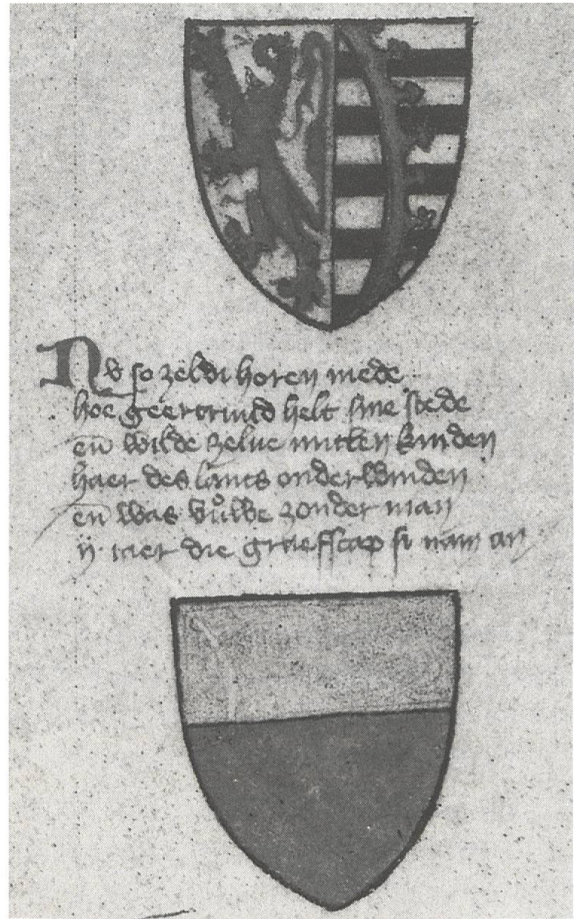 Nv so zeldi horen mede
hoe geertruud helt sine stede
en̄ wilde zelue mitten kinden
haer des lants onderwinden
en̄ was vrůwe zonder man
ij iaer die graefscap si nam an